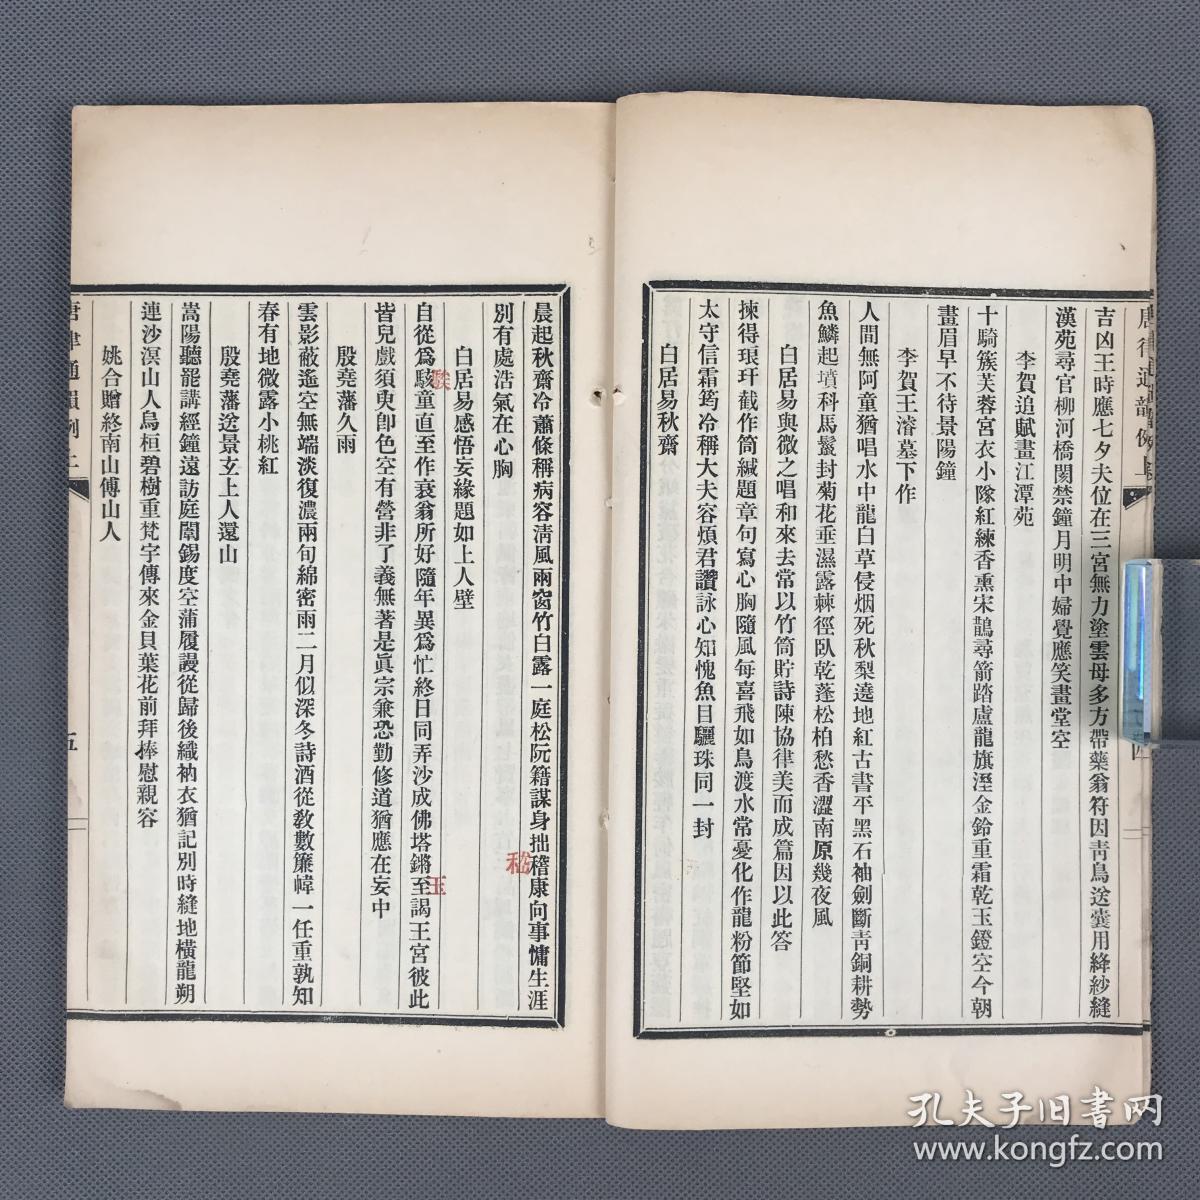 唐律通韻例上
吉凶王時應七夕夫位在三宮無力塗雲母多方帶藥翁符因靑鳥送囊用絳紗縫
漢苑尋官柳河橋閡禁鐘月明中婦覺應笑畫堂空
李賀追賦畫江潭苑
十騎簇芙蓉宮衣小隊紅練香熏宋鵲尋箭踏盧龍旗溼金鈴重霜乾玉鐙空今朝
畫眉早不待景陽鐘
李賀王濬墓下作
人間無阿童猶唱水中龍白草侵烟死秋梨遶地紅古書平黑石袖劍斷靑銅耕勢
魚鱗起墳科馬鬣封菊花垂濕露棘徑臥乾蓬松柏愁香澀南原幾夜風
白居易與微之唱和來去常以竹筒貯詩陳協律美而成篇因以此答
揀得琅玕截作筒緘題章句寫心胸隨風每喜飛如鳥渡水常憂化作龍粉節堅如
太守信霜筠冷稱大夫容煩君讚詠心知愧魚目驪珠同一封
白居易秋齋
晨起秋齋冷蕭條稱病容淸風兩窗竹白露一庭松阮籍謀身拙稽康向事慵生涯
嵇
別有處浩氣在心胸
白居易感悟妄緣題如上人壁
自從爲騃童直至作衰翁所好隨年異爲忙終日同弄沙成佛塔鏘至謁王宮彼此
玉
皆兒戲須臾卽色空有營非了義無著是眞宗兼恐勤修道猶應在妄中
殷堯藩久雨
雲影蔽遙空無端淡復濃兩旬綿密雨二月似深冬詩酒從敎數簾幃一任重孰知
春有地微露小桃紅
殷堯藩送景玄上人還山
嵩陽聽罷講經鐘遠訪庭闈錫度空蒲履謾從歸後織衲衣猶記別時縫地橫龍朔
連沙溟山入鳥桓碧樹重梵宇傳來金貝葉花前拜捧慰親容
姚合贈終南山傅山人
唐律通韻例上
五
孔夫子旧书网
www.kongfz.com